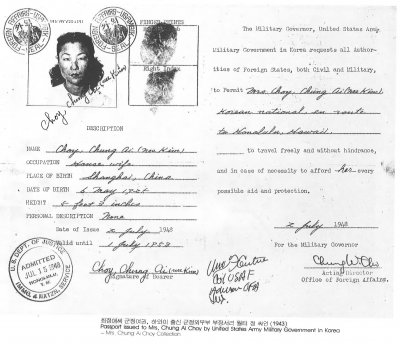 FINGER PRINTS
Right Index
Choy Chung Ai (nee Kim)
DESCRIPTION
NAME Choy, Chung Ai (nee Kim)
OCCUPATION House wife
PLACE OF BIRTH Shanghai, China
DATE OF BIRTH 6 May
HEIGHT 5 foot 2 inches
PERSONAL DESCRIPTION None
Date of Issue 2 July 1948
Valid until 1 July
Choy Chung Ai (nee Kim)
Signature of Bearer
U.S. DEPT. OF JUSTICE
ADMITTED
JUL 15 1948
HONOLULU
T.H.
IMMIG. & NATZN. SERVICE
The Military Governor, United States Army
Military Government in Korea requests all Author-
ities of Foreign States, both Civil and Military,
to Permit Mrs. Choy, Chung Ai (nee Kim)
Korean national en route
to Honolulu Hawaii
to travel freely and without hindrance,
and in case of necessity to afford her every
possible aid and protection.
2 July 1948
For the Military Governor
Acting Director
Office of Foreign Affairs.
Col USAF
(1943)
Passport issued to Mrs. Chung Ai Choy by United States Army Military Government in Korea
- Mrs. Chung Ai Choy Collection